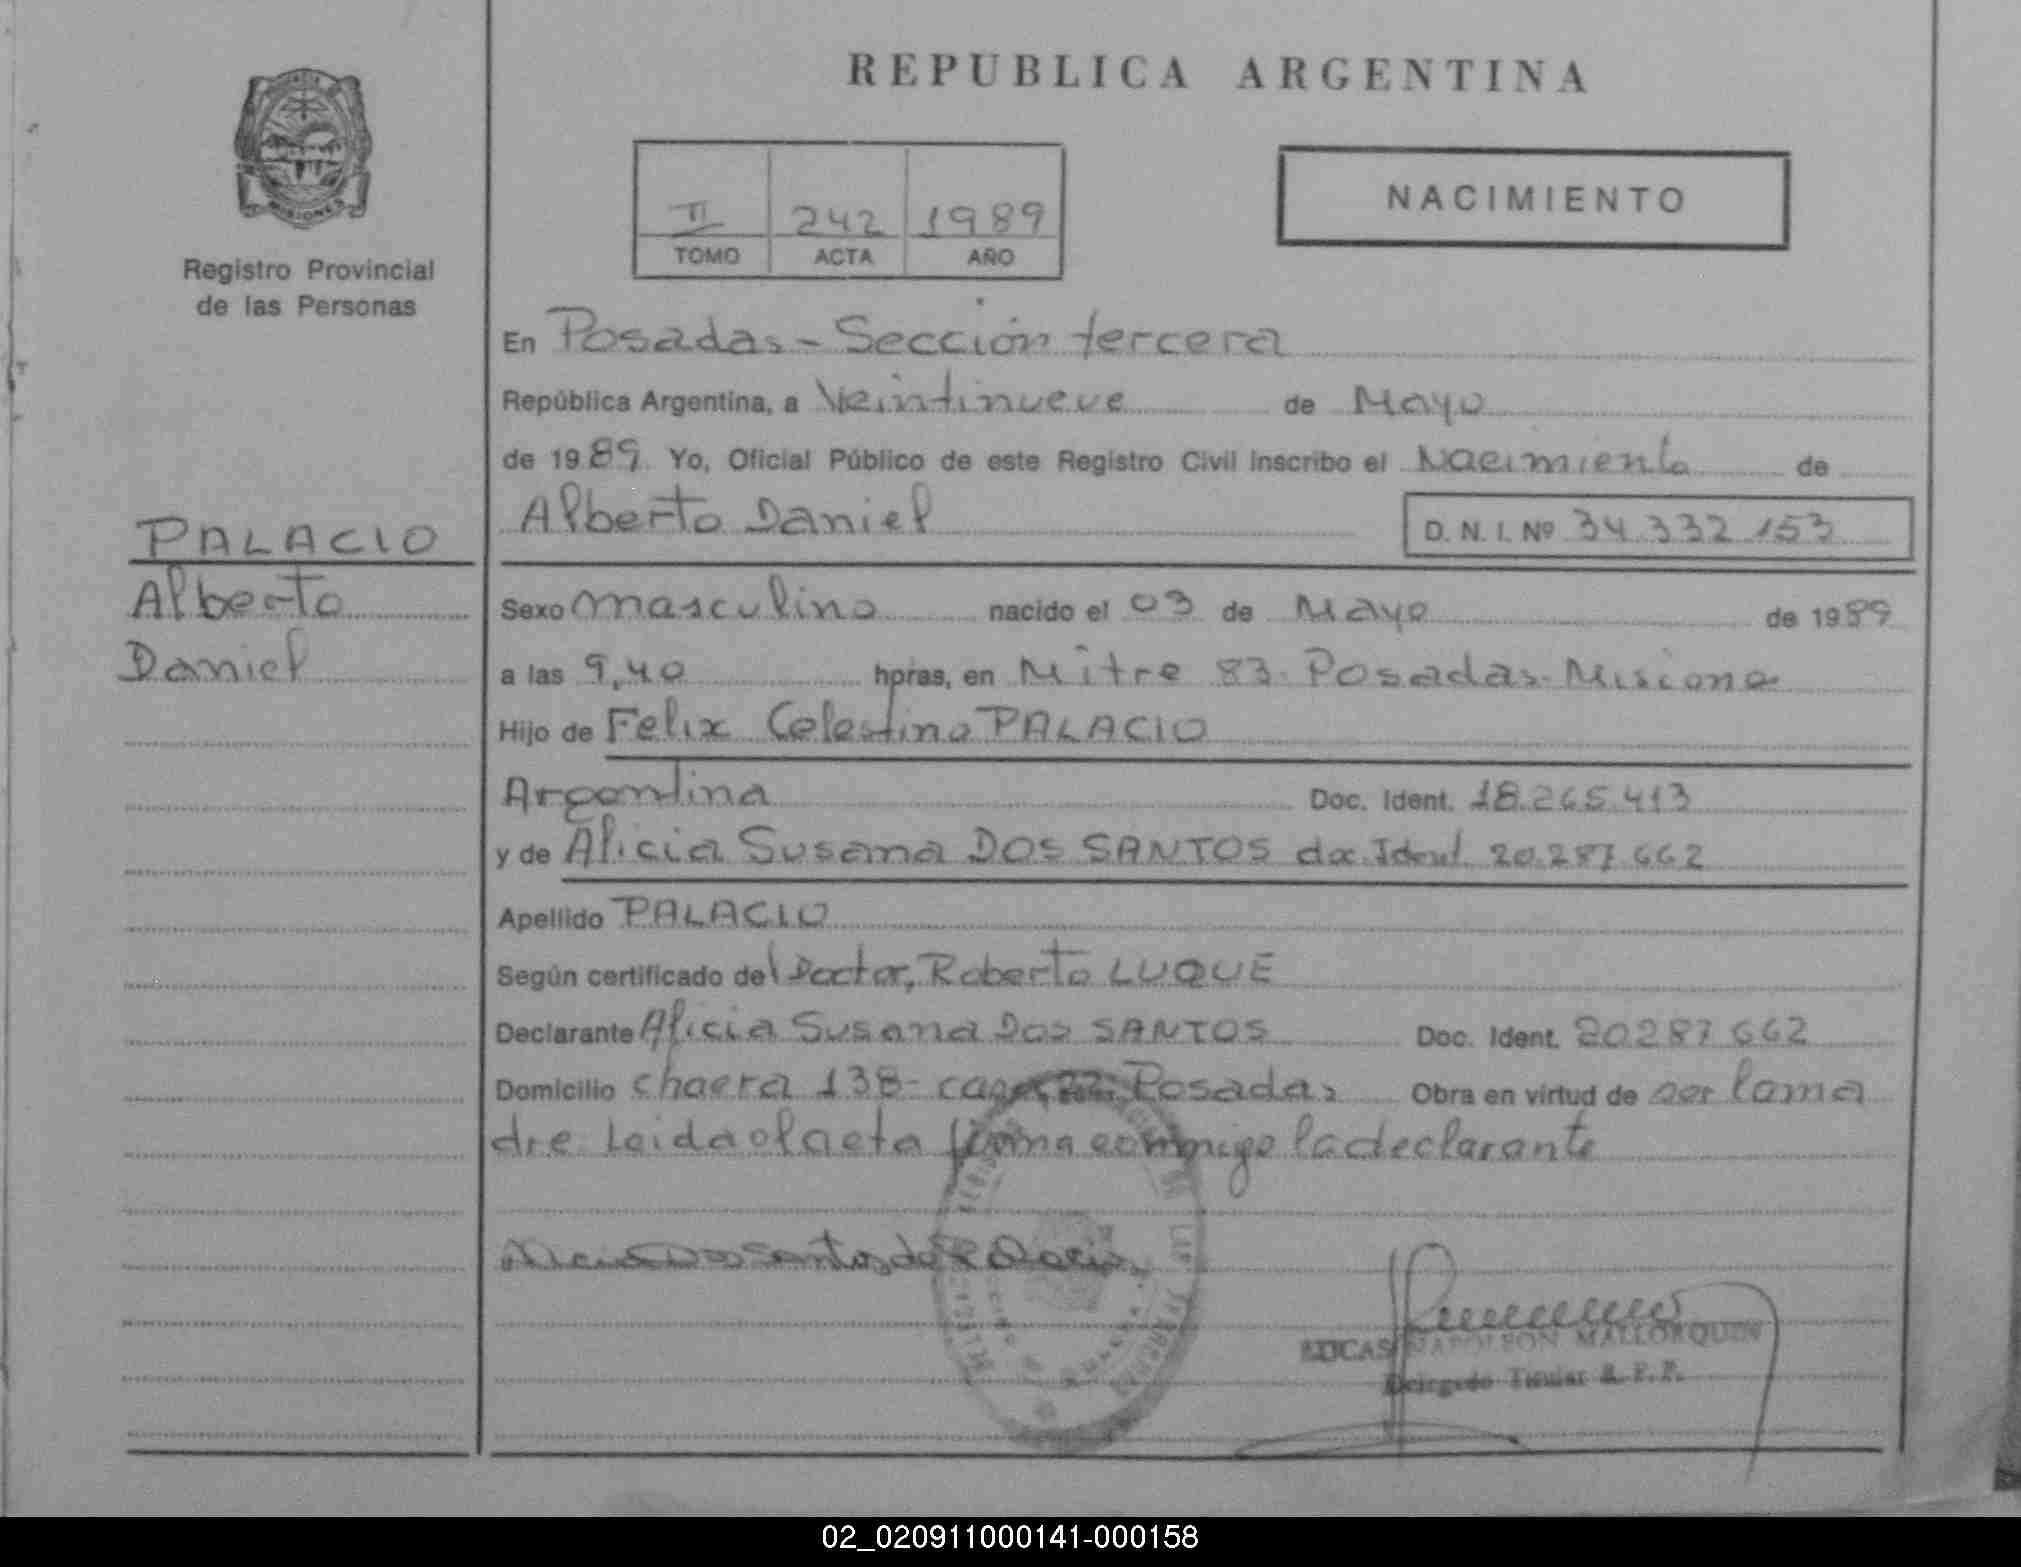 REPUBLICA ARGENTINA
MISIONES
Registro Provincial
de las Personas
II 242 1989
TOMO ACTA AÑO
NACIMIENTO
En Posadas - Sección tercera
República Argentina, a Veintinueve de Mayo
de 1989 Yo, Oficial Público de este Registro Civil inscribo el Nacimiento de
Alberto Daniel D. N. I. Nº 34.332.153
PALACIO
Alberto
Daniel
Sexo masculino nacido el 03 de Mayo de 1989
a las 9,40 horas, en Mitre 83. Posadas-Misiones
Hijo de Felix Celestino PALACIO
Argentina Doc. Ident. 18.265.413
y de Alicia Susana DOS SANTOS doc. Ident. 20.287.662
Apellido PALACIO
Según certificado del Doctor, Roberto LUQUE
Declarante Alicia Susana Dos SANTOS Doc. Ident. 20287662
Domicilio chacra 138- casa Posadas Obra en virtud de ser la ma
dre. Leida el acta firma conmigo la declarante
Alicia Dos Santos de Palacio
LUCAS NAPOLEON MALLORQUIN
Delegado Titular R. P. P.
02_020911000141-000158